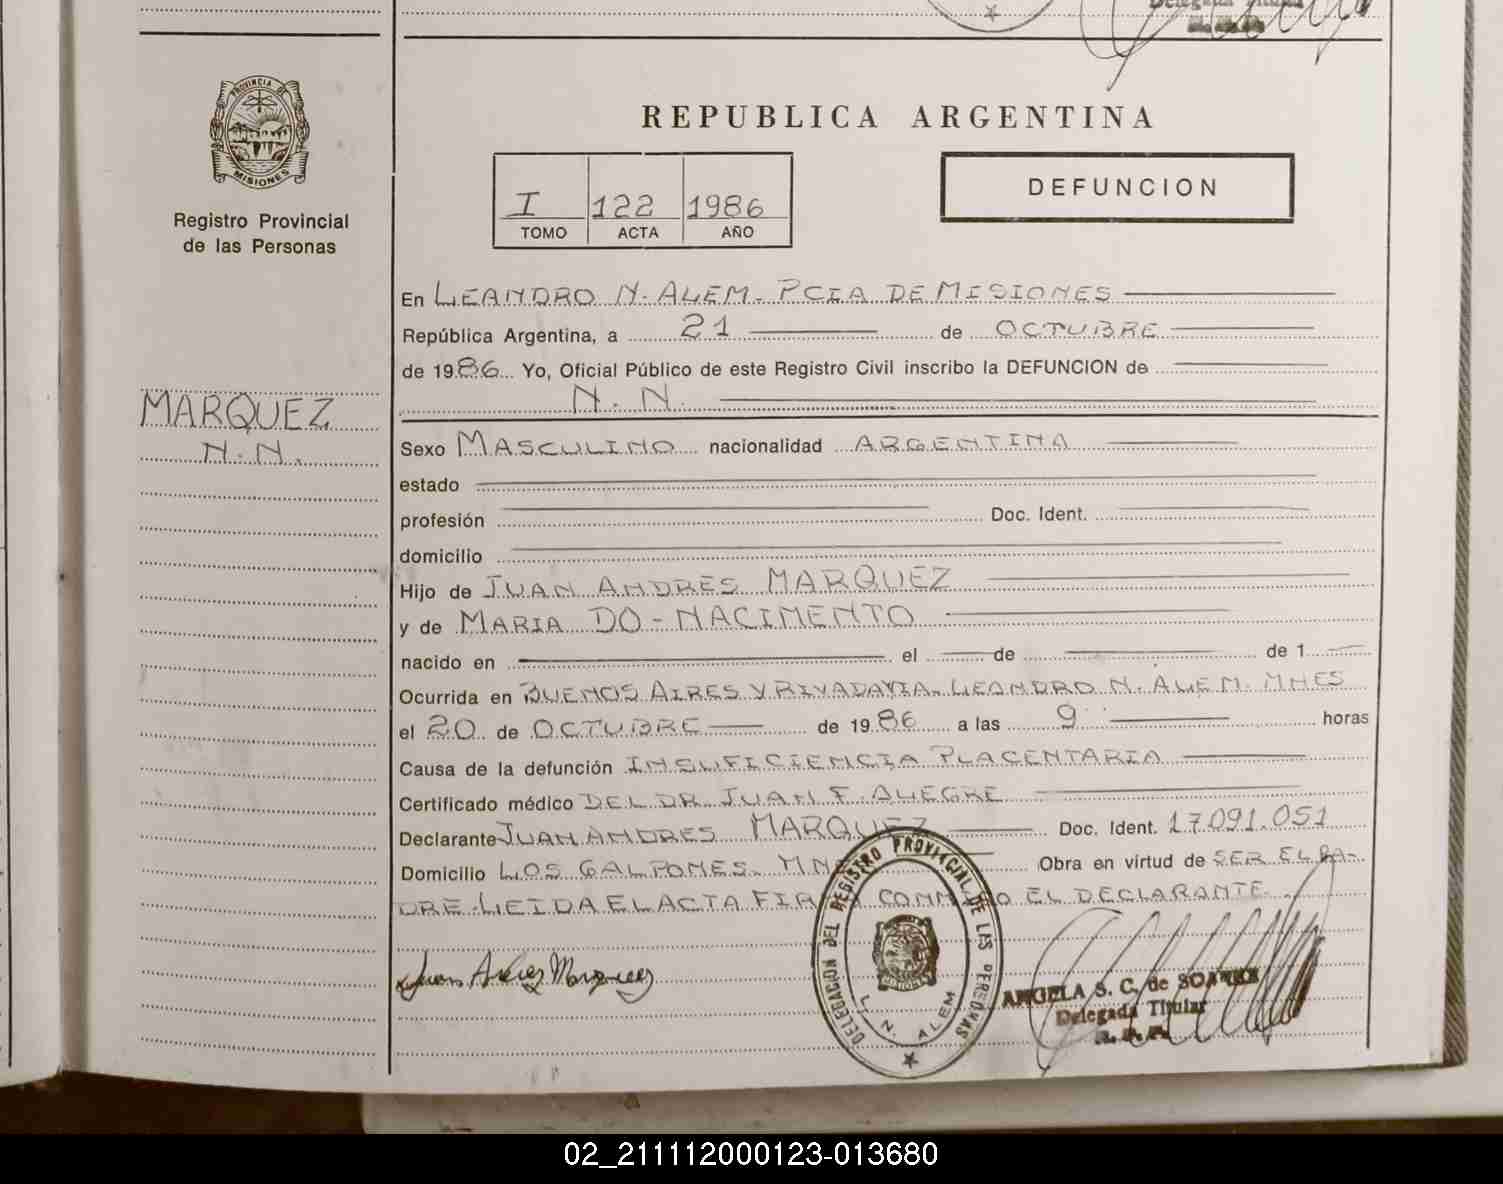 Delegada Titular
PROVINCIA DE
MISIONES
Registro Provincial
de las Personas
MARQUEZ
N.N.
REPUBLICA ARGENTINA
I 122 1986
TOMO ACTA AÑO
DEFUNCION
En LEANDRO N. ALEM. PCIA DE MISIONES
República Argentina, a 21 de OCTUBRE
de 1986 Yo, Oficial Público de este Registro Civil inscribo la DEFUNCION de
N. N.
Sexo MASCULINO nacionalidad ARGENTINA
estado
profesión Doc. Ident.
domicilio
Hijo de JUAN ANDRES MARQUEZ
y de MARIA DO-NACIMENTO
nacido en el de de 1
Ocurrida en BUENOS AIRES Y RIVADAVIA. LEANDRO N. ALEM. MNES
el 20 de OCTUBRE de 1986 a las 9 horas
Causa de la defunción INSUFICIENCIA PLACENTARIA
Certificado médico DEL DR. JUAN F. ALEGRE
Declarante JUAN ANDRES MARQUEZ Doc. Ident. 17.091.051
Domicilio LOS GALPONES. Obra en virtud de SER EL PA-
DRE. LEIDA EL ACTA EL DECLARANTE.
Juan Andres Marquez
DELEGACION DEL REGISTRO PROVINCIAL DE LAS PERSONAS
L. N. ALEM
ANGELA S. C. de
Delegada Titular
02_211112000123-013680